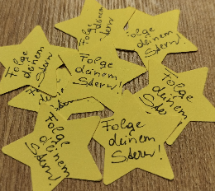 Folge
deinem
Stern
Folge
deinem
Stern
Folge
deinem
Stern!
Folge
deinem
Stern!!
Folge
deinem
Stern
Folge
deinem
Stern!
Folge
deinem
Stern!